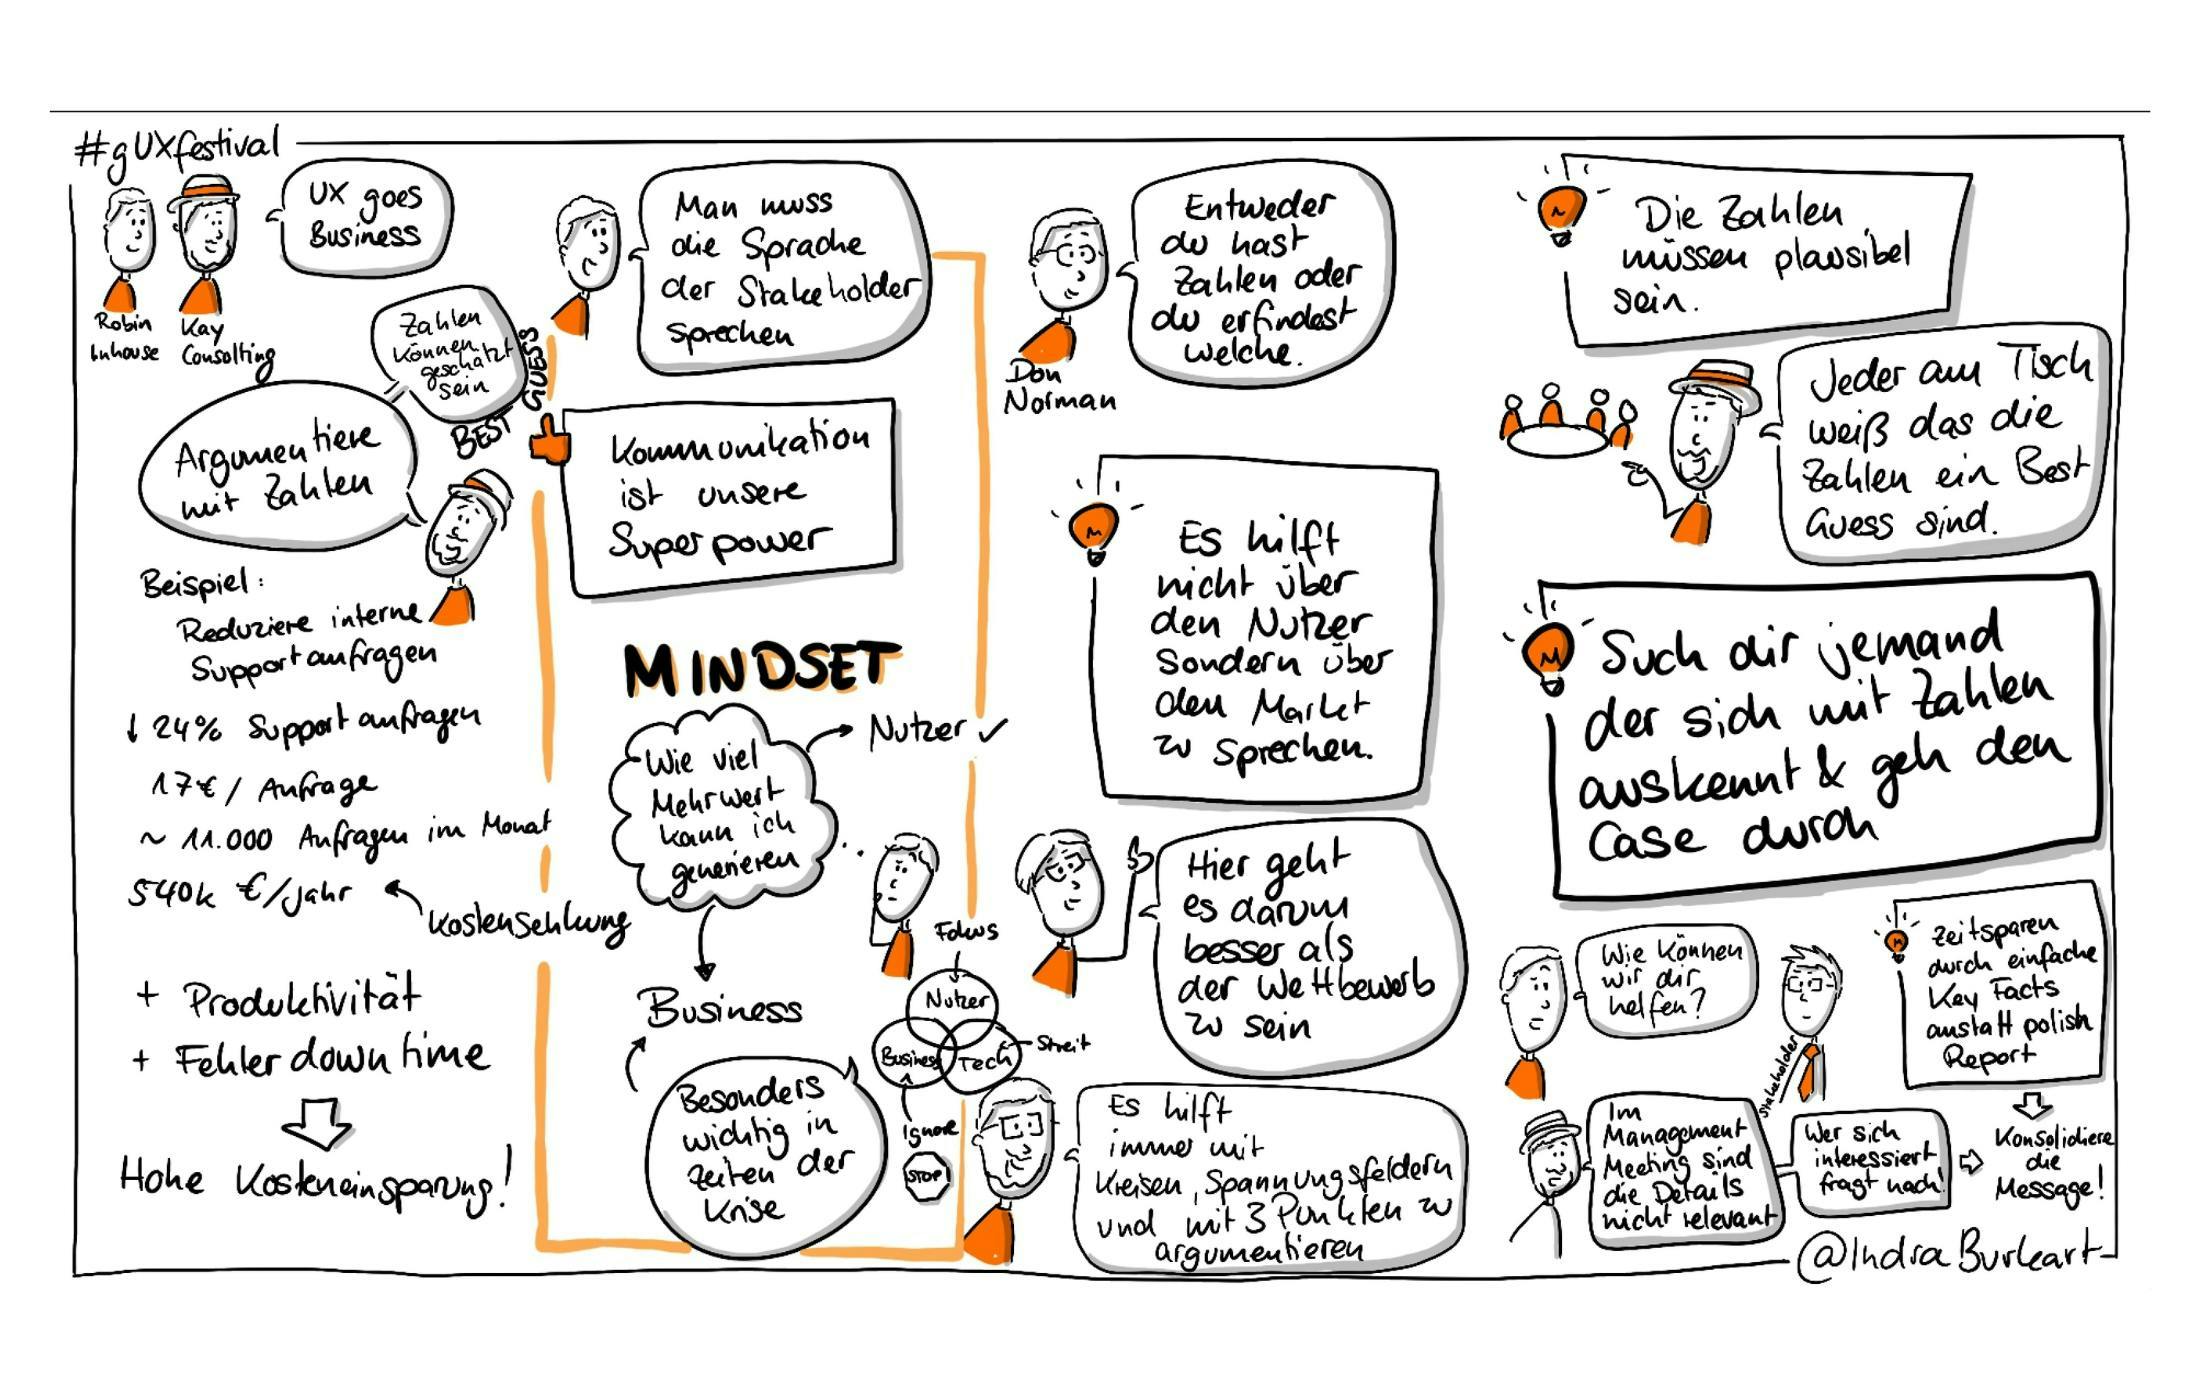 #gUXfestival
UX goes
Business
Robin
Inhouse
Kay
Consulting
Zahlen
können
geschätzt
sein
BEST GUESS
Argumentiere
mit Zahlen
Beispiel:
Reduziere interne
Supportanfragen
↓ 24% Supportanfragen
17€ / Anfrage
~ 11.000 Anfragen im Monat
540k €/Jahr
Kostensenkung
+ Produktivität
+ Fehler downtime
Hohe Kosteneinsparung!
Man muss
die Sprache
der Stakeholder
sprechen
Kommunikation
ist unsere
Superpower
MINDSET
Wie viel
Mehrwert
kann ich
generieren
Nutzer ✓
Business
Besonders
wichtig in
Zeiten der
Krise
Fokus
Nutzer
Business
Tech
Streit
Ignore
STOP
Entweder
du hast
Zahlen oder
du erfindest
welche.
Don
Norman
Es hilft
nicht über
den Nutzer
sondern über
den Markt
zu sprechen.
Hier geht
es darum
besser als
der Wettbewerb
zu sein
Es hilft
immer mit
Kreisen, Spannungsfeldern
und mit 3 Punkten zu
argumentieren
Die Zahlen
müssen plausibel
sein.
Jeder am Tisch
weiß das die
Zahlen ein Best
Guess sind.
Such dir jemand
der sich mit Zahlen
auskennt & geh den
Case durch
Wie können
wir dir
helfen?
Stakeholder
Zeitsparen
durch einfache
Key Facts
anstatt polish
Report
Im
Management
Meeting sind
die Details
nicht relevant
Wer sich
interessiert
fragt nach!
Konsolidiere
die
Message!
@IndraBurkart